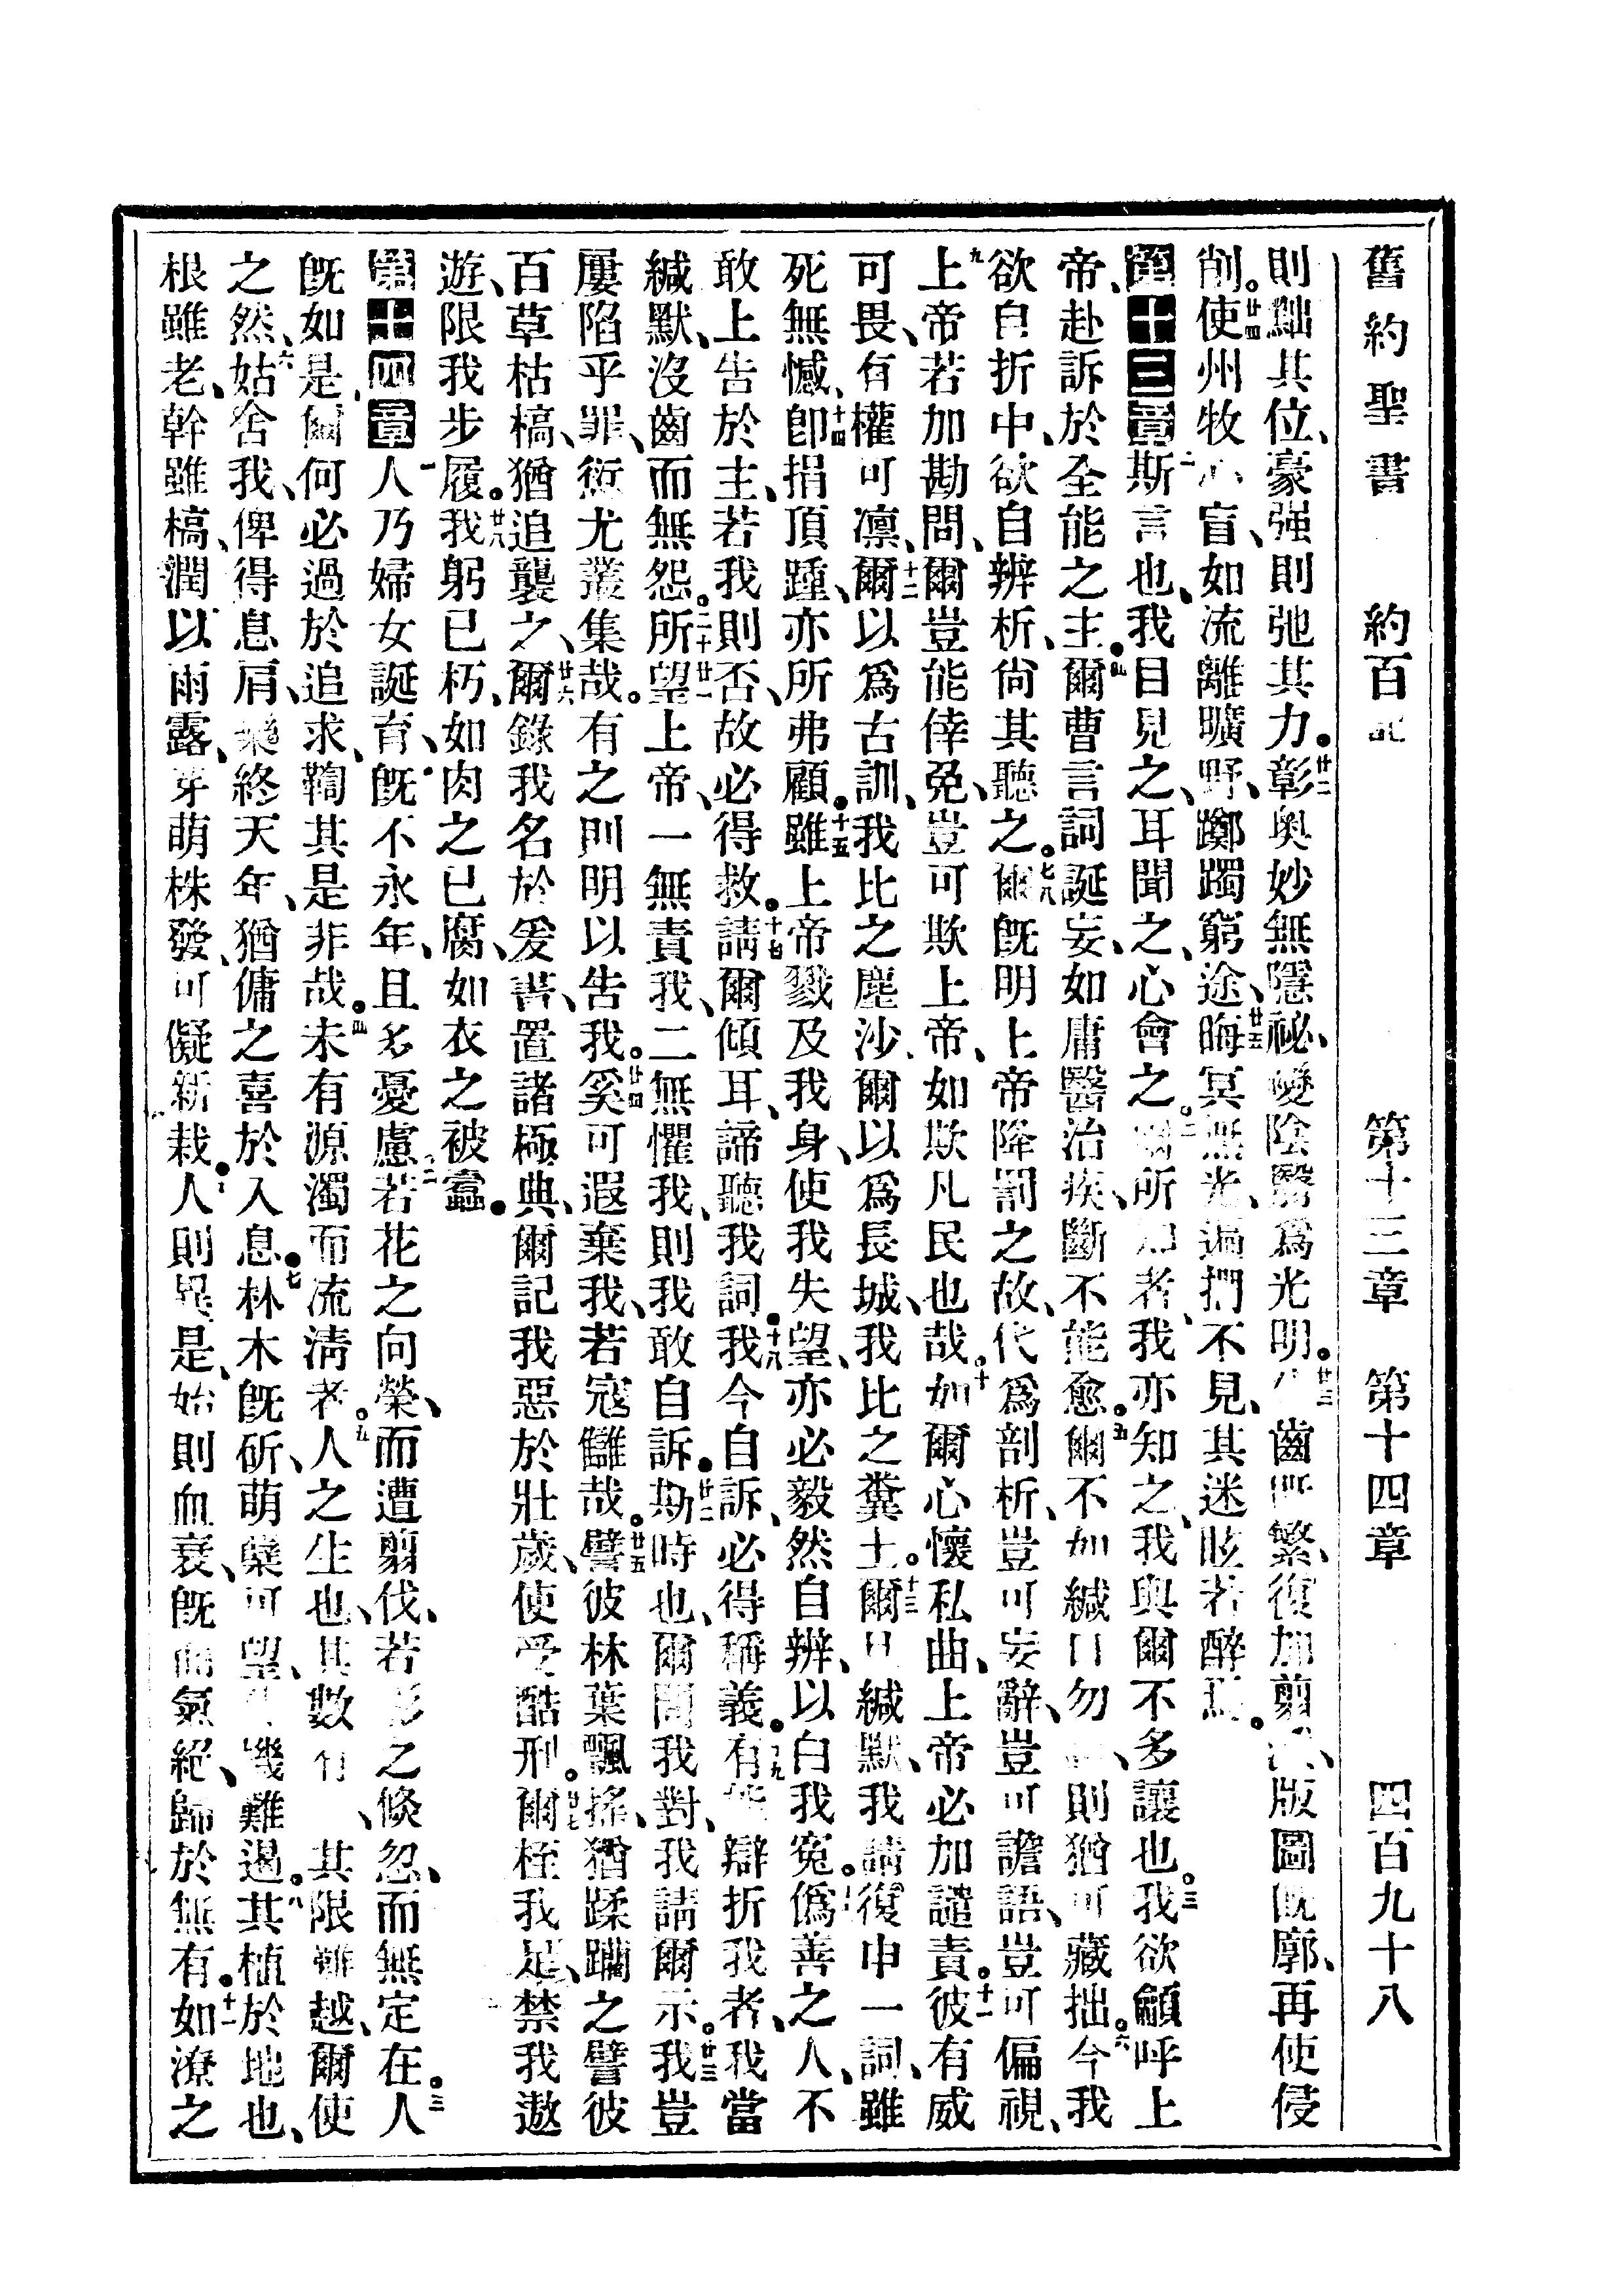 舊約聖書　約百記　第十三章　第十四章　四百九十八
則黜其位、豪强則弛其力。廿二彰奥妙無隱祕、變陰翳爲光明。廿三齒繁、復加剪、版圖旣廓、再使侵
削。廿四使州牧心盲、如流離曠野、躑躅窮途、廿五晦冥無光、遍捫不見、其迷眩若醉焉。
第十三章一斯言也、我目見之、耳聞之、心會之。二爾所知者、我亦知之、我與爾不多讓也。三我欲籲呼上
帝、赴訴於全能之主。四爾曹言詞誕妄、如庸醫治疾、斷不能愈。五爾不如緘口勿、則猶可藏拙。六今我
欲自折中、欲自辨析、尙其聽之。七八爾旣明上帝降罰之故、代爲剖析、豈可妄辭、豈可譫語、豈可偏視、
九上帝若加勘問、爾豈能倖免、豈可欺上帝、如欺凡民也哉。十如爾心懷私曲、上帝必加譴責。十一彼有威
可畏、有權可凛、十二爾以爲古訓、我比之塵沙、爾以爲長城、我比之糞土。十三爾且緘默、我請復申一詞、雖
死無憾、十四卽捐頂踵、亦所弗顧。十五雖上帝戮及我身、使我失望、亦必毅然自辨、以白我冤。僞善之人、不
敢上告於主、若我則否、故必得救。十七請爾傾耳、諦聽我詞。十八我今自訴、必得稱義。十九有能辯折我者、我當
緘默、沒齒而無怨。二十廿一所望上帝、一無責我、二無懼我、則我敢自訴。廿二斯時也、爾問我對、我請爾示。廿三我豈
屢陷乎罪、愆尤叢集哉。有之則明以告我。廿四奚可遐棄我、若寇讎哉。廿五譬彼林葉飄搖、猶蹂躪之、譬彼
百草枯槁、猶追襲之、廿六爾錄我名於爰書、置諸極典、爾記我惡於壯歲、使受酷刑。廿七爾桎我足、禁我遨
遊、限我步履。廿八我躬已朽、如肉之已腐、如衣之被蠹。
第十四章一人乃婦女誕育、旣不永年、且多憂慮、二若花之向榮、而遭翦伐、若影之倏忽、而無定在。三人
旣如是、爾何必過於追求、鞫其是非哉。四未有源濁而流淸者。五人之生也、其數有、其限難越、爾使
之然、六姑舍我、俾得息肩、樂終天年、猶傭之喜於入息。七林木旣斫、萌蘗可望、機難遏。八其植於地也、
根雖老、幹雖槁、潤以雨露、芽萌株發、可儗新栽。人則異是、始則血衰、旣而氣絕、歸於無有。十一如潦之